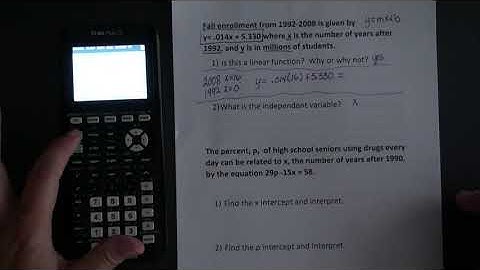 Fall enrollment from 1992-2008 is given by y=mx+b
y= .014x + 5.330 where x is the number of years after
1992, and y is in millions of students.
1) Is this a linear function? Why or why not? yes
2008 x=16 y= .014(16)+5.330 =
1992 x=0
2)What is the independent variable? X
The percent, p, of high school seniors using drugs every
day can be related to x, the number of years after 1990,
by the equation 29p -15x = 58.
1) Find the x intercept and interpret.
2) Find the p intercept and interpret.